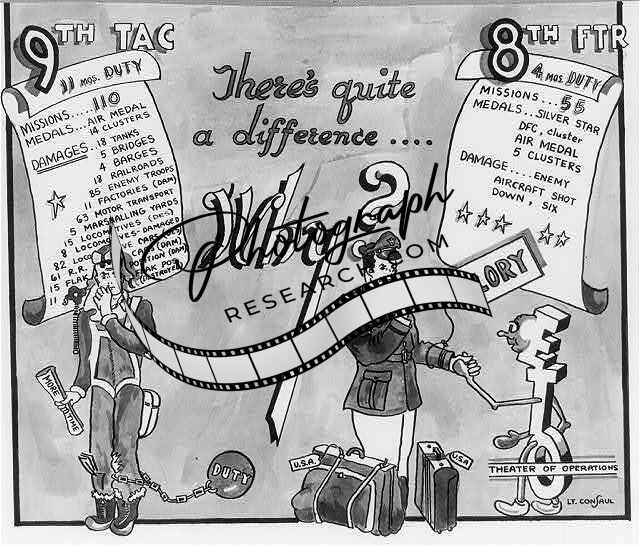 9TH TAC
11 MOS. DUTY
MISSIONS.....110
MEDALS...AIR MEDAL
14 CLUSTERS
DAMAGES..18 TANKS
5 BRIDGES
4 BARGES
18 RAILROADS
85 ENEMY TROOPS
11 FACTORIES (DAM)
63 MOTOR TRANSPORT
5 MARSHALLING YARDS
15 LOCOMOTIVES (DES)
8 LOCOMOTIVES DAMAGED
82
61 R.R. CARS (DAM)
15 FLAK POSITION (DAM)
11
There's quite
a difference ....
8TH FTR
4 MOS DUTY
MISSIONS...55
MEDALS..SILVER STAR
DFC, cluster
AIR MEDAL
5 CLUSTERS
DAMAGE....ENEMY
AIRCRAFT SHOT
DOWN, SIX
Photograph
RESEARCH.COM
MORE
TIME
DUTY
U.S.A.
U.S.A.
ETO
THEATER OF OPERATIONS
LT. CONSAUL